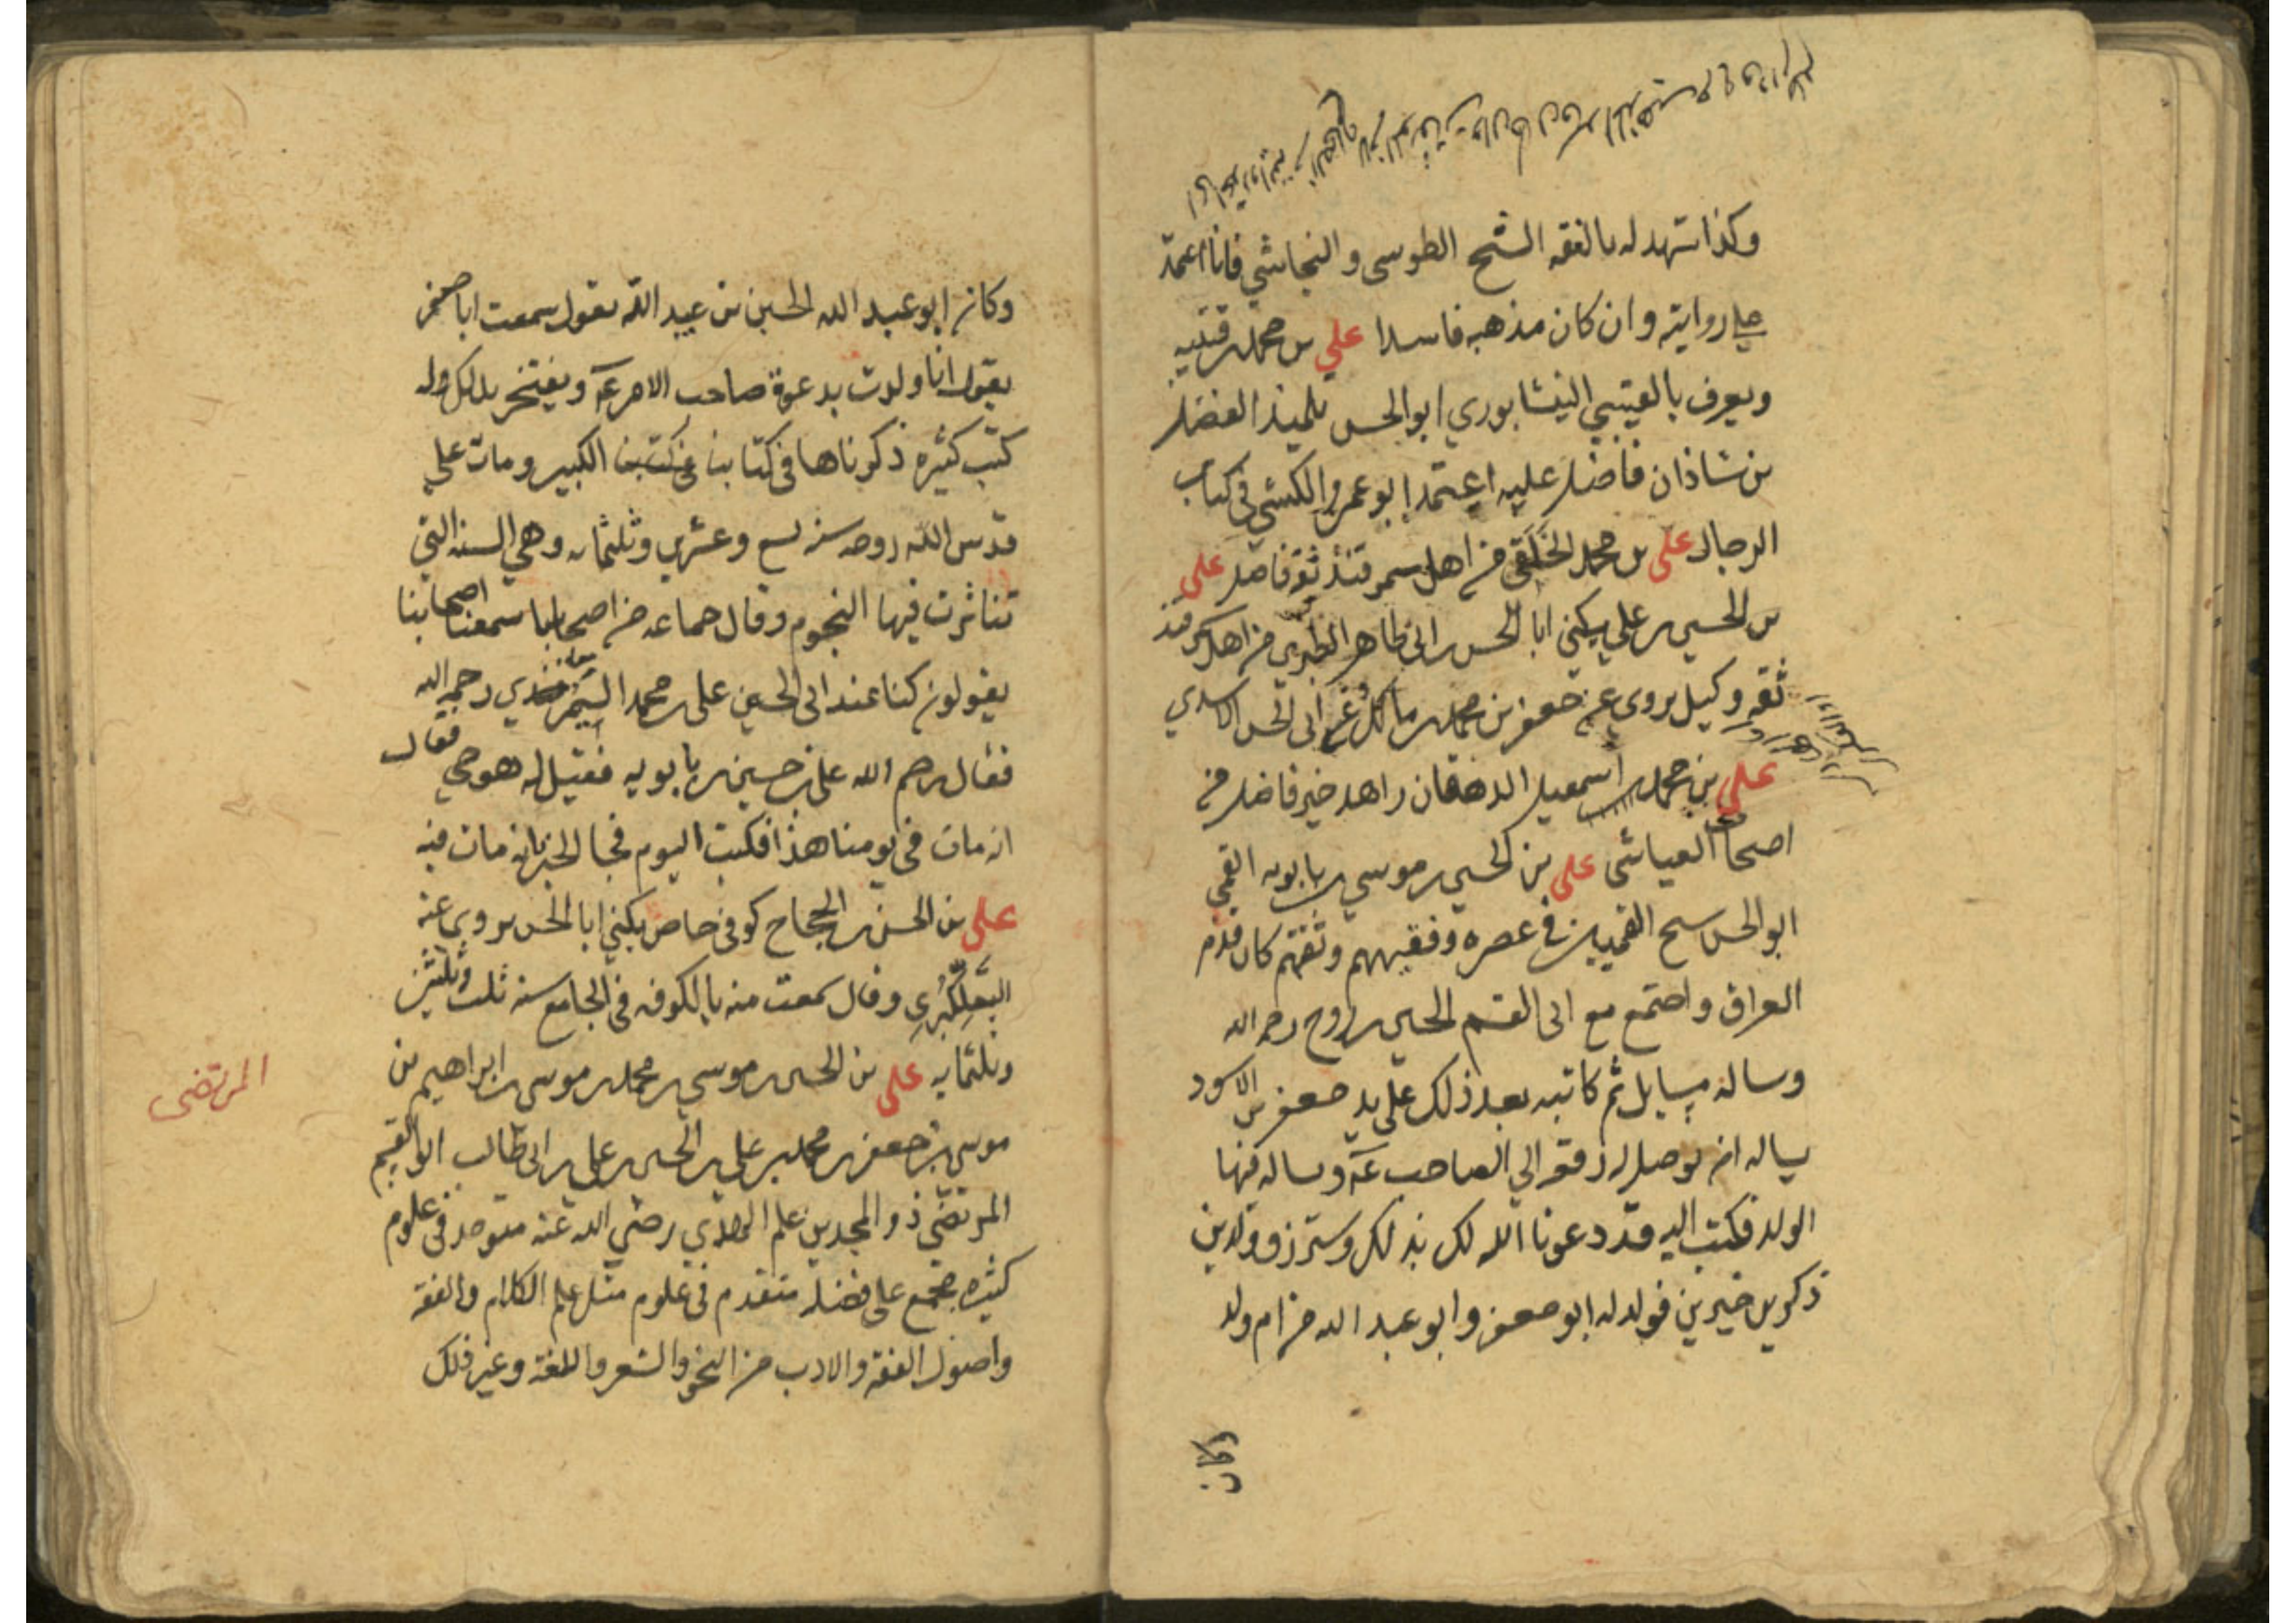 وكذا شهد له بالفقه الشيخ الطوسي والنجاشي فانا اعتمد
على روايته وان كان مذهبه فاسدا علي بن محمد بن قتيبه
ويعرف بالقتيبي النيشابوري ابو الحسن تلميذ الفضل
بن شاذان فاضل عليه اعتمد ابو عمرو الكشي في كتاب
الرجال على بن محمد الخلقي من اهل سمرقند ثقة فاضل على
بن الحسين بن علي يكني ابا الحسن بن ابي طاهر الطبري من اهل سمرقند
ثقه وكيل يروى عن جعفر بن محمد بن مالك وعن ابى الحسن الاسدي
علي بن محمد بن اسمعيل الدهقان زاهد خير فاضل من
اصحاب العياشى على بن الحسين بن موسي بن بابويه القمي
ابو الحسن شيخ القميين في عصره وفقيههم وثقتهم كان قدم
العراق واجتمع مع ابى القسم الحسين بن روح رحمه الله
وساله مسايل ثم كاتبه بعد ذلك على يد جعفر بن الاسود
يساله ان يوصل له رقعه الي الصاحب عـ وساله فيها
الولد فكتب اليه قد دعونا الله لك بذلك وسترزق ولدين
ذكرين خيرين فولد له ابو جعفر وابو عبد الله من ام ولد
وكان
وكان ابو عبد الله الحسين بن عبيد الله يقول سمعت ابا جعفر
يقول انا ولدت بدعوة صاحب الامر عـ ويفتخر بذلك وله
كتب كثيره ذكرناها في كتابنا الكبير ومات علي
قدس الله روحه سنه تسع وعشرين وثلثمايه وهي السنه التي
تناثرت فيها النجوم وقال جماعه من اصحابنا سمعنا اصحابنا
يقولون كنا عند ابى الحسين على بن محمد السمري رحمه الله
فقال رحم الله على بن حسين بن بابويه فقيل له هو حي فقال
انه مات في يومنا هذا فكتب اليوم فجا الخبر بانه مات فيه
على بن الحسن بن الحجاج كوفى خاص يكني ابا الحسن روى عنه
التلعكبري وقال سمعت منه بالكوفه في الجامع سنه ثلث وثلثين
وثلثمايه على بن الحسين بن موسي بن محمد بن موسى بن ابراهيم بن
موسى بن جعفر بن محمد بن علي بن الحسين بن علي بن ابى طالب ابو القسم
المرتضي ذو المجدين علم الهدي رضي الله عنه متوحد في علوم
كثيره مجمع على فضله متقدم في علوم مثل علم الكلام والفقه
واصول الفقه والادب من النحو والشعر واللغة وغير ذلك
المرتضى